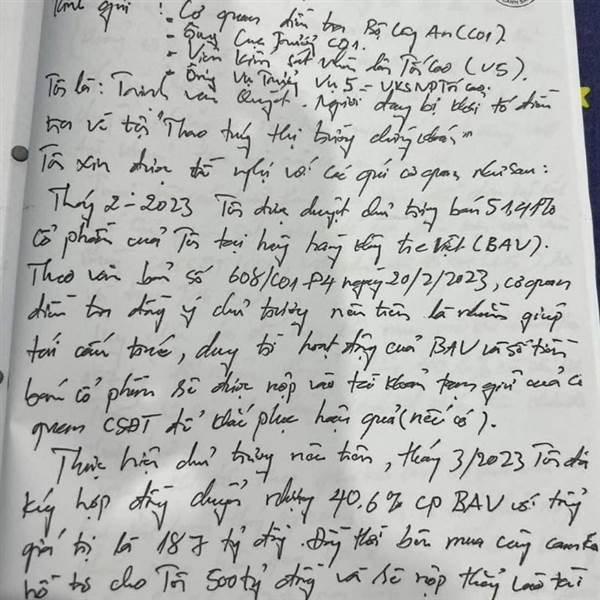 Kính gửi : - Cơ quan điều tra Bộ Công An (C01)
- Ông Cục Trưởng C01.
- Viện kiểm sát nhân dân Tối Cao (V5).
- Ông Vụ Trưởng Vụ 5 - VKSNDTối cao.
Tôi là : Trịnh văn Quyết. Người đang bị khởi tố điều
tra về tội "Thao túng thị trường chứng khoán"
Tôi xin được đề nghị với các quí cơ quan như sau :
Tháng 2 - 2023 Tôi được duyệt chủ trương bán 51,4%
cổ phần của Tôi tại hãng hàng không tre Việt (BAV).
Theo văn bản số 608/C01-P4 ngày 20/2/2023, cơ quan
điều tra đồng ý chủ trương nêu trên là nhằm giúp
tái cấu trúc, duy trì hoạt động của BAV và số tiền
bán cổ phần sẽ được nộp vào tài khoản tạm giữ của cơ
quan CSĐT để khắc phục hậu quả (nếu có).
Thực hiện chủ trương nêu trên, tháng 3/2023 Tôi đã
ký hợp đồng chuyển nhượng 40.6% CP BAV với tổng
giá trị là 187 tỷ đồng. Đồng thời bên mua cũng cam kết
hỗ trợ cho Tôi 500 tỷ đồng và sẽ nộp thẳng vào tài